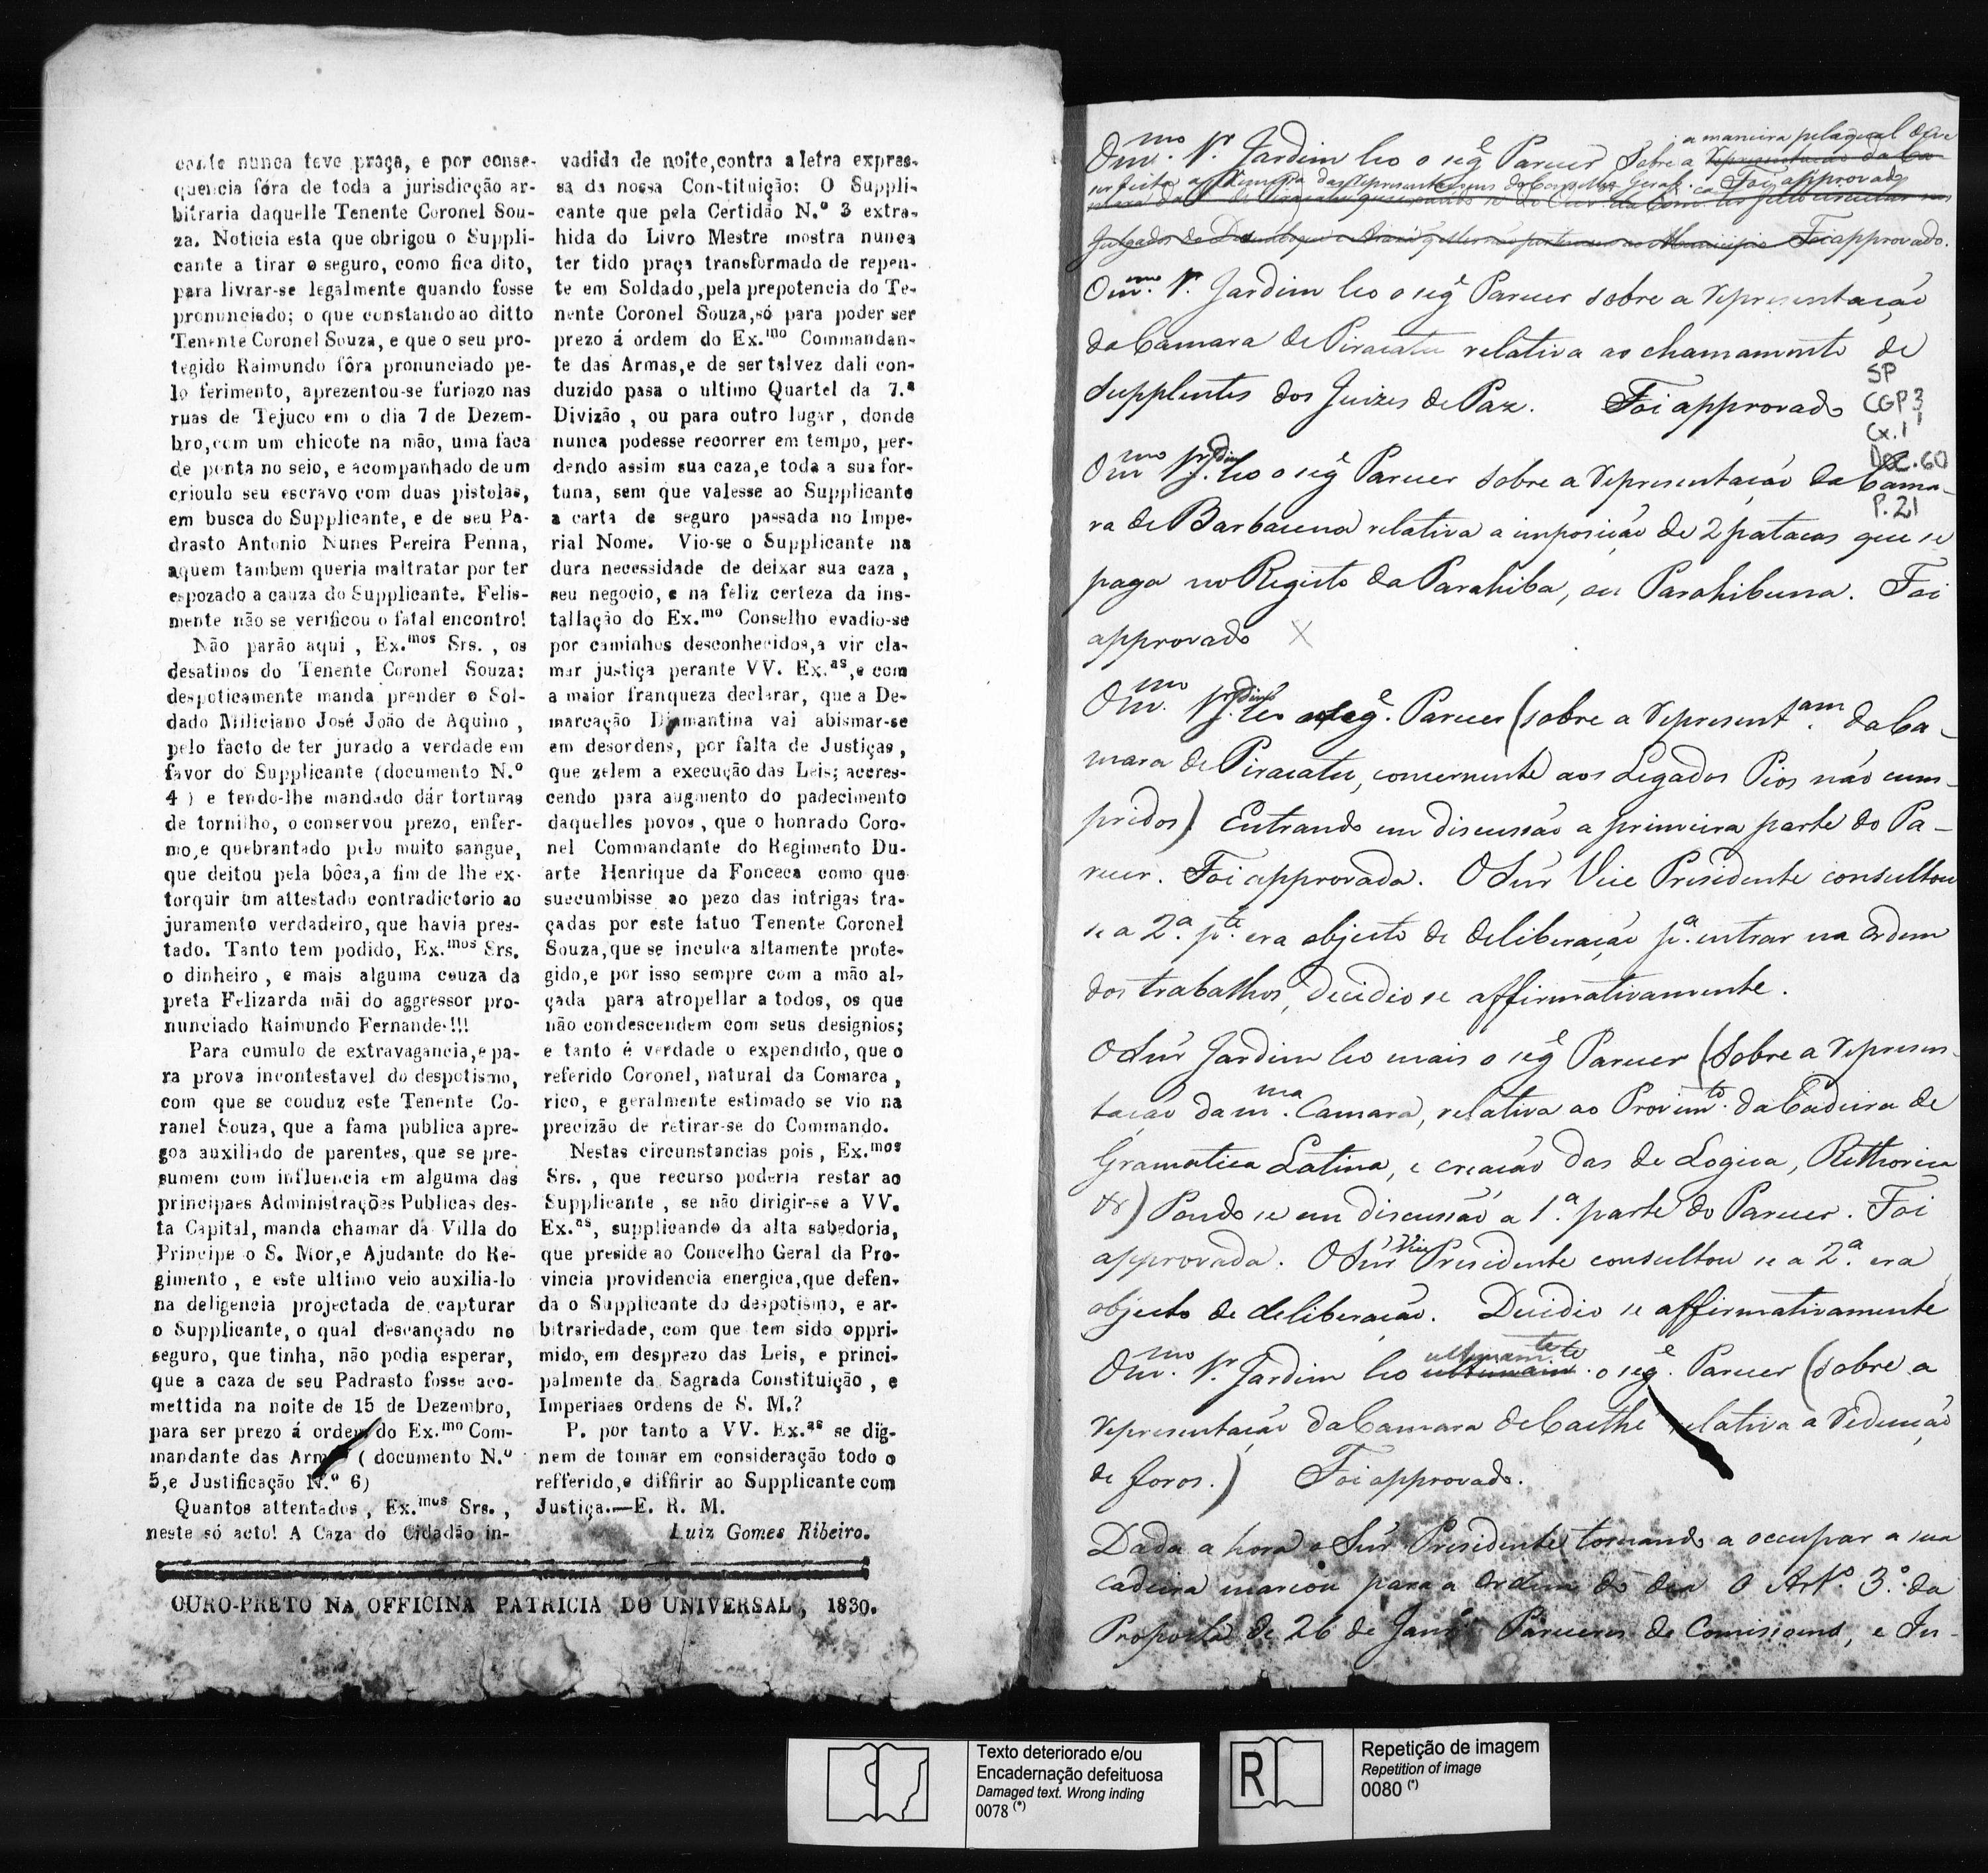 cante nunca teve praça, e por conse-
quencia fóra de toda a jurisdicção ar-
bitraria daquelle Tenente Coronel Sou-
za. Noticia esta que obrigou o Suppli-
cante a tirar o seguro, como fica dito,
para livrar-se legalmente quando fosse
pronunciado; o que constando ao ditto
Tenente Coronel Souza, e que o seu pro-
tegido Raimundo fôra pronunciado pe-
lo ferimento, aprezentou-se furiozo nas
ruas de Tejuco em o dia 7 de Dezem-
bro, com um chicote na mão, uma faca
de ponta no seio, e acompanhado de um
crioulo seu escravo com duas pistolas,
em busca do Supplicante, e de seu Pa-
drasto Antonio Nunes Pereira Penna,
aquem tambem queria maltratar por ter
espozado a cauza do Supplicante. Felis-
mente não se verificou o fatal encontro!
Não parão aqui, Ex.mos Srs., os
desatinos do Tenente Coronel Souza:
despoticamente manda prender o Sol-
dado Miliciano José João de Aquino,
pelo facto de ter jurado a verdade em
favor do Supplicante (documento N.º
4) e tendo-lhe mandado dár torturas
de tornilho, o conservou prezo, enfer-
mo, e quebrantado pelo muito sangue,
que deitou pela bôca, a fim de lhe ex-
torquir um attestado contradictorio ao
juramento verdadeiro, que havia pres-
tado. Tanto tem podido, Ex.mos Srs.
o dinheiro, e mais alguma couza da
preta Felizarda mãi do aggressor pro-
nunciado Raimundo Fernandes!!!
Para cumulo de extravagancia, e pa-
ra prova incontestavel do despotismo,
com que se couduz este Tenente Co-
ranel Souza, que a fama publica apre-
goa auxiliado de parentes, que se pre-
sumem com influencia em alguma das
principaes Administrações Publicas des-
ta Capital, manda chamar da Villa do
Principe o S. Mor, e Ajudante do Re-
gimento, e este ultimo veio auxilia-lo
na deligencia projectada de capturar
o Supplicante, o qual descançado no
seguro, que tinha, não podia esperar,
que a caza de seu Padrasto fosse aco-
mettida na noite de 15 de Dezembro,
para ser prezo á ordem do Ex.mo Com-
mandante das Armas (documento N.º
5, e Justificação N.º 6)
Quantos attentados, Ex.mos Srs.,
neste só acto! A Caza do Cidadão in-
vadida de noite, contra a letra expres-
sa da nossa Constituição: O Suppli-
cante que pela Certidão N.º 3 extra-
hida do Livro Mestre mostra nunca
ter tido praça transformado de repen-
te em Soldado, pela prepotencia do Te-
nente Coronel Souza, só para poder ser
prezo á ordem do Ex.mo Commandan-
te das Armas, e de ser talvez dali con-
duzido pasa o ultimo Quartel da 7.ª
Divizão, ou para outro lugar, donde
nunca podesse recorrer em tempo, per-
dendo assim sua caza, e toda a sua for-
tuna, sem que valesse ao Supplicante
a carta de seguro passada no Impe-
rial Nome. Vio-se o Supplicante na
dura necessidade de deixar sua caza,
seu negocio, e na feliz certeza da ins-
tallação do Ex.mo Conselho evadio-se
por caminhos desconhecidos, a vir cla-
mar justiça perante VV. Ex.as, e com
a maior franqueza declarar, que a De-
marcação Diamantina vai abismar-se
em desordens, por falta de Justiças,
que zelem a execução das Leis; accres-
cendo para augmento do padecimento
daquelles povos, que o honrado Coro-
nel Commandante do Regimento Du-
arte Henrique da Fonceca como que
succumbisse ao pezo das intrigas tra-
çadas por este fatuo Tenente Coronel
Souza, que se inculca altamente prote-
gido, e por isso sempre com a mão al-
çada para atropellar a todos, os que
não condescendem com seus designios;
e tanto é verdade o expendido, que o
referido Coronel, natural da Comarca,
rico, e geralmente estimado se vio na
precizão de retirar-se do Commando.
Nestas circunstancias pois, Ex.mos
Srs., que recurso poderia restar ao
Supplicante, se não dirigir-se a VV.
Ex.as, supplicando da alta sabedoria,
que preside ao Concelho Geral da Pro-
vincia providencia energica, que defen-
da o Supplicante do despotismo, e ar-
bitrariedade, com que tem sido oppri-
mido, em desprezo das Leis, e princi-
palmente da Sagrada Constituição, e
Imperiaes ordens de S. M.?
P. por tanto a VV. Ex.as se dig-
nem de tomar em consideração todo o
refferido, e diffirir ao Supplicante com
Justiça.—E. R. M.
Luiz Gomes Ribeiro.
OURO-PRETO NA OFFICINA PATRICIA DO UNIVERSAL, 1830.
a maneira pela qual deve
O m.mo Sr. Jardim leo o seg.e Parecer Sobre a representação da Ca-
ser feita a das representaçoens do Conselho Geral. Foi approvado
Julgados de Desemboque e Araxá q elles não pertencem ao Municipio Foi approvado.
O m.mo Sr. Jardim leo o seg.e Parecer sobre a representação
da Camara de Piracatu relativa ao chamamento de
Supplentes dos Juizes de Paz. Foi approvado
SP
CGP 3
Cx. 1
Doc. 60
P. 21
O m.mo Sr. Jardim leo o seg.e Parecer sobre a representação da Cama-
ra de Barbacena relativa a imposição de 2 patacas que se
paga no Registo da Parahiba, ou Parahibuna. Foi
approvado X
O m.mo Sr. Jardim leo o seg.e Parecer (sobre a represent.am da Ca-
mara de Piracatu, concernente aos Legados Pios não cum-
pridos) Entrando em discussão a primeira parte do Pa-
recer. Foi approvada. O Snr Vice Presidente consultou
se a 2.ª p.te era objecto de deliberação p.ª entrar na ordem
dos trabalhos, decidio se affirmativamente.
O Snr Jardim leo mais o seg.e Parecer (Sobre a represen-
tação da m.ma Camara, relativa ao Provim.to da Cadeira de
Gramatica Latina, e creação das de Logica, Rethorica
&) Pondo se em discussão a 1.ª parte do Parecer. Foi
approvada. O Snr Vice Presidente consultou se a 2.ª era
objecto de deliberação. Decidio se affirmativamente
O m.mo Sr. Jardim leo ultimam.te o seg.e Parecer (sobre a
representação da Camara de Caethé relativa a reducção
de foros.) Foi approvado.
Dada a hora o Snr Presidente tornando a occupar a sua
cadeira marcou para a ordem do dia O Art.º 3.º da
Proposta de 26 de Janr.º Pareceres de Comissoens, e In-
Texto deteriorado e/ou
Encadernação defeituosa
Damaged text. Wrong inding
0078 (*)
R
Repetição de imagem
Repetition of image
0080 (*)